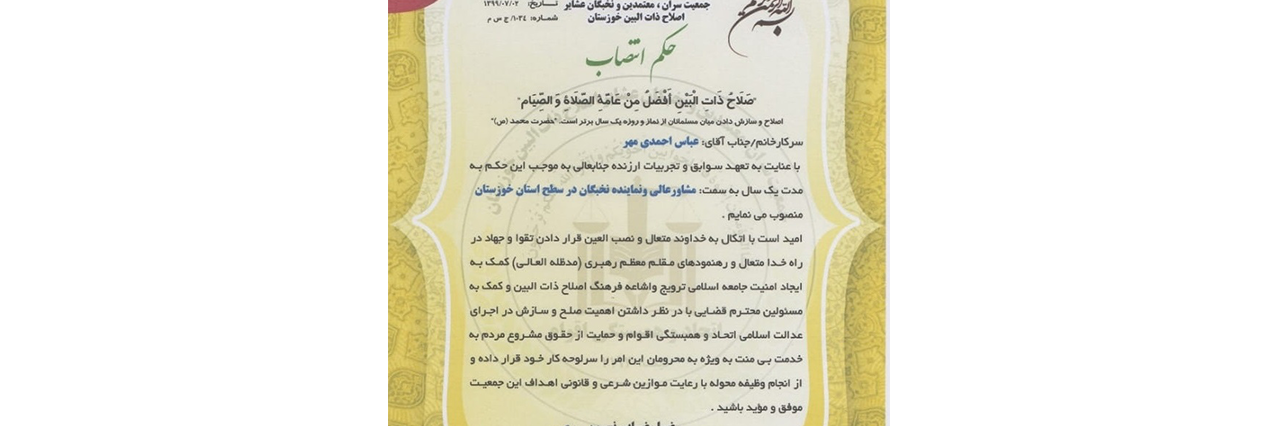 جمعیت سران ، معتمدین و نخبگان عشایر
اصلاح ذات البین خوزستان
تاریخ: ۱۳۹۹/۰۷/۰۲
شماره: ۱۰۳٤/ ج س م
حکم انتصاب
"صَلَاحُ ذَاتِ الْبَیْنِ أَفْضَلُ مِنْ عَامَّةِ الصَّلَاةِ وَ الصِّیَام"
اصلاح و سازش دادن میان مسلمانان از نماز و روزه یک سال برتر است. "حضرت محمد (ص)"
سرکارخانم/جناب آقای: عباس احمدی مهر
با عنایت به تعهد سوابق و تجربیات ارزنده جنابعالی به موجب این حکم به
مدت یک سال به سمت: مشاورعالی ونماینده نخبگان در سطح استان خوزستان
منصوب می نمایم .
امید است با اتکال به خداوند متعال و نصب العین قرار دادن تقوا و جهاد در
راه خدا متعال و رهنمودهای مقلم معظم رهبری (مدظله العالی) کمک به
ایجاد امنیت جامعه اسلامی ترویج واشاعه فرهنگ اصلاح ذات البین و کمک به
مسئولین محترم قضایی با در نظر داشتن اهمیت صلح و سازش در اجرای
عدالت اسلامی اتحاد و همبستگی اقوام و حمایت از حقوق مشروع مردم به
خدمت بی منت به ویژه به محرومان این امر را سرلوحه کار خود قرار داده و
از انجام وظیفه محوله با رعایت موازین شرعی و قانونی اهداف این جمعیت
موفق و مؤید باشید .